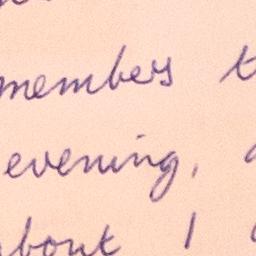 members
evening,
about 1